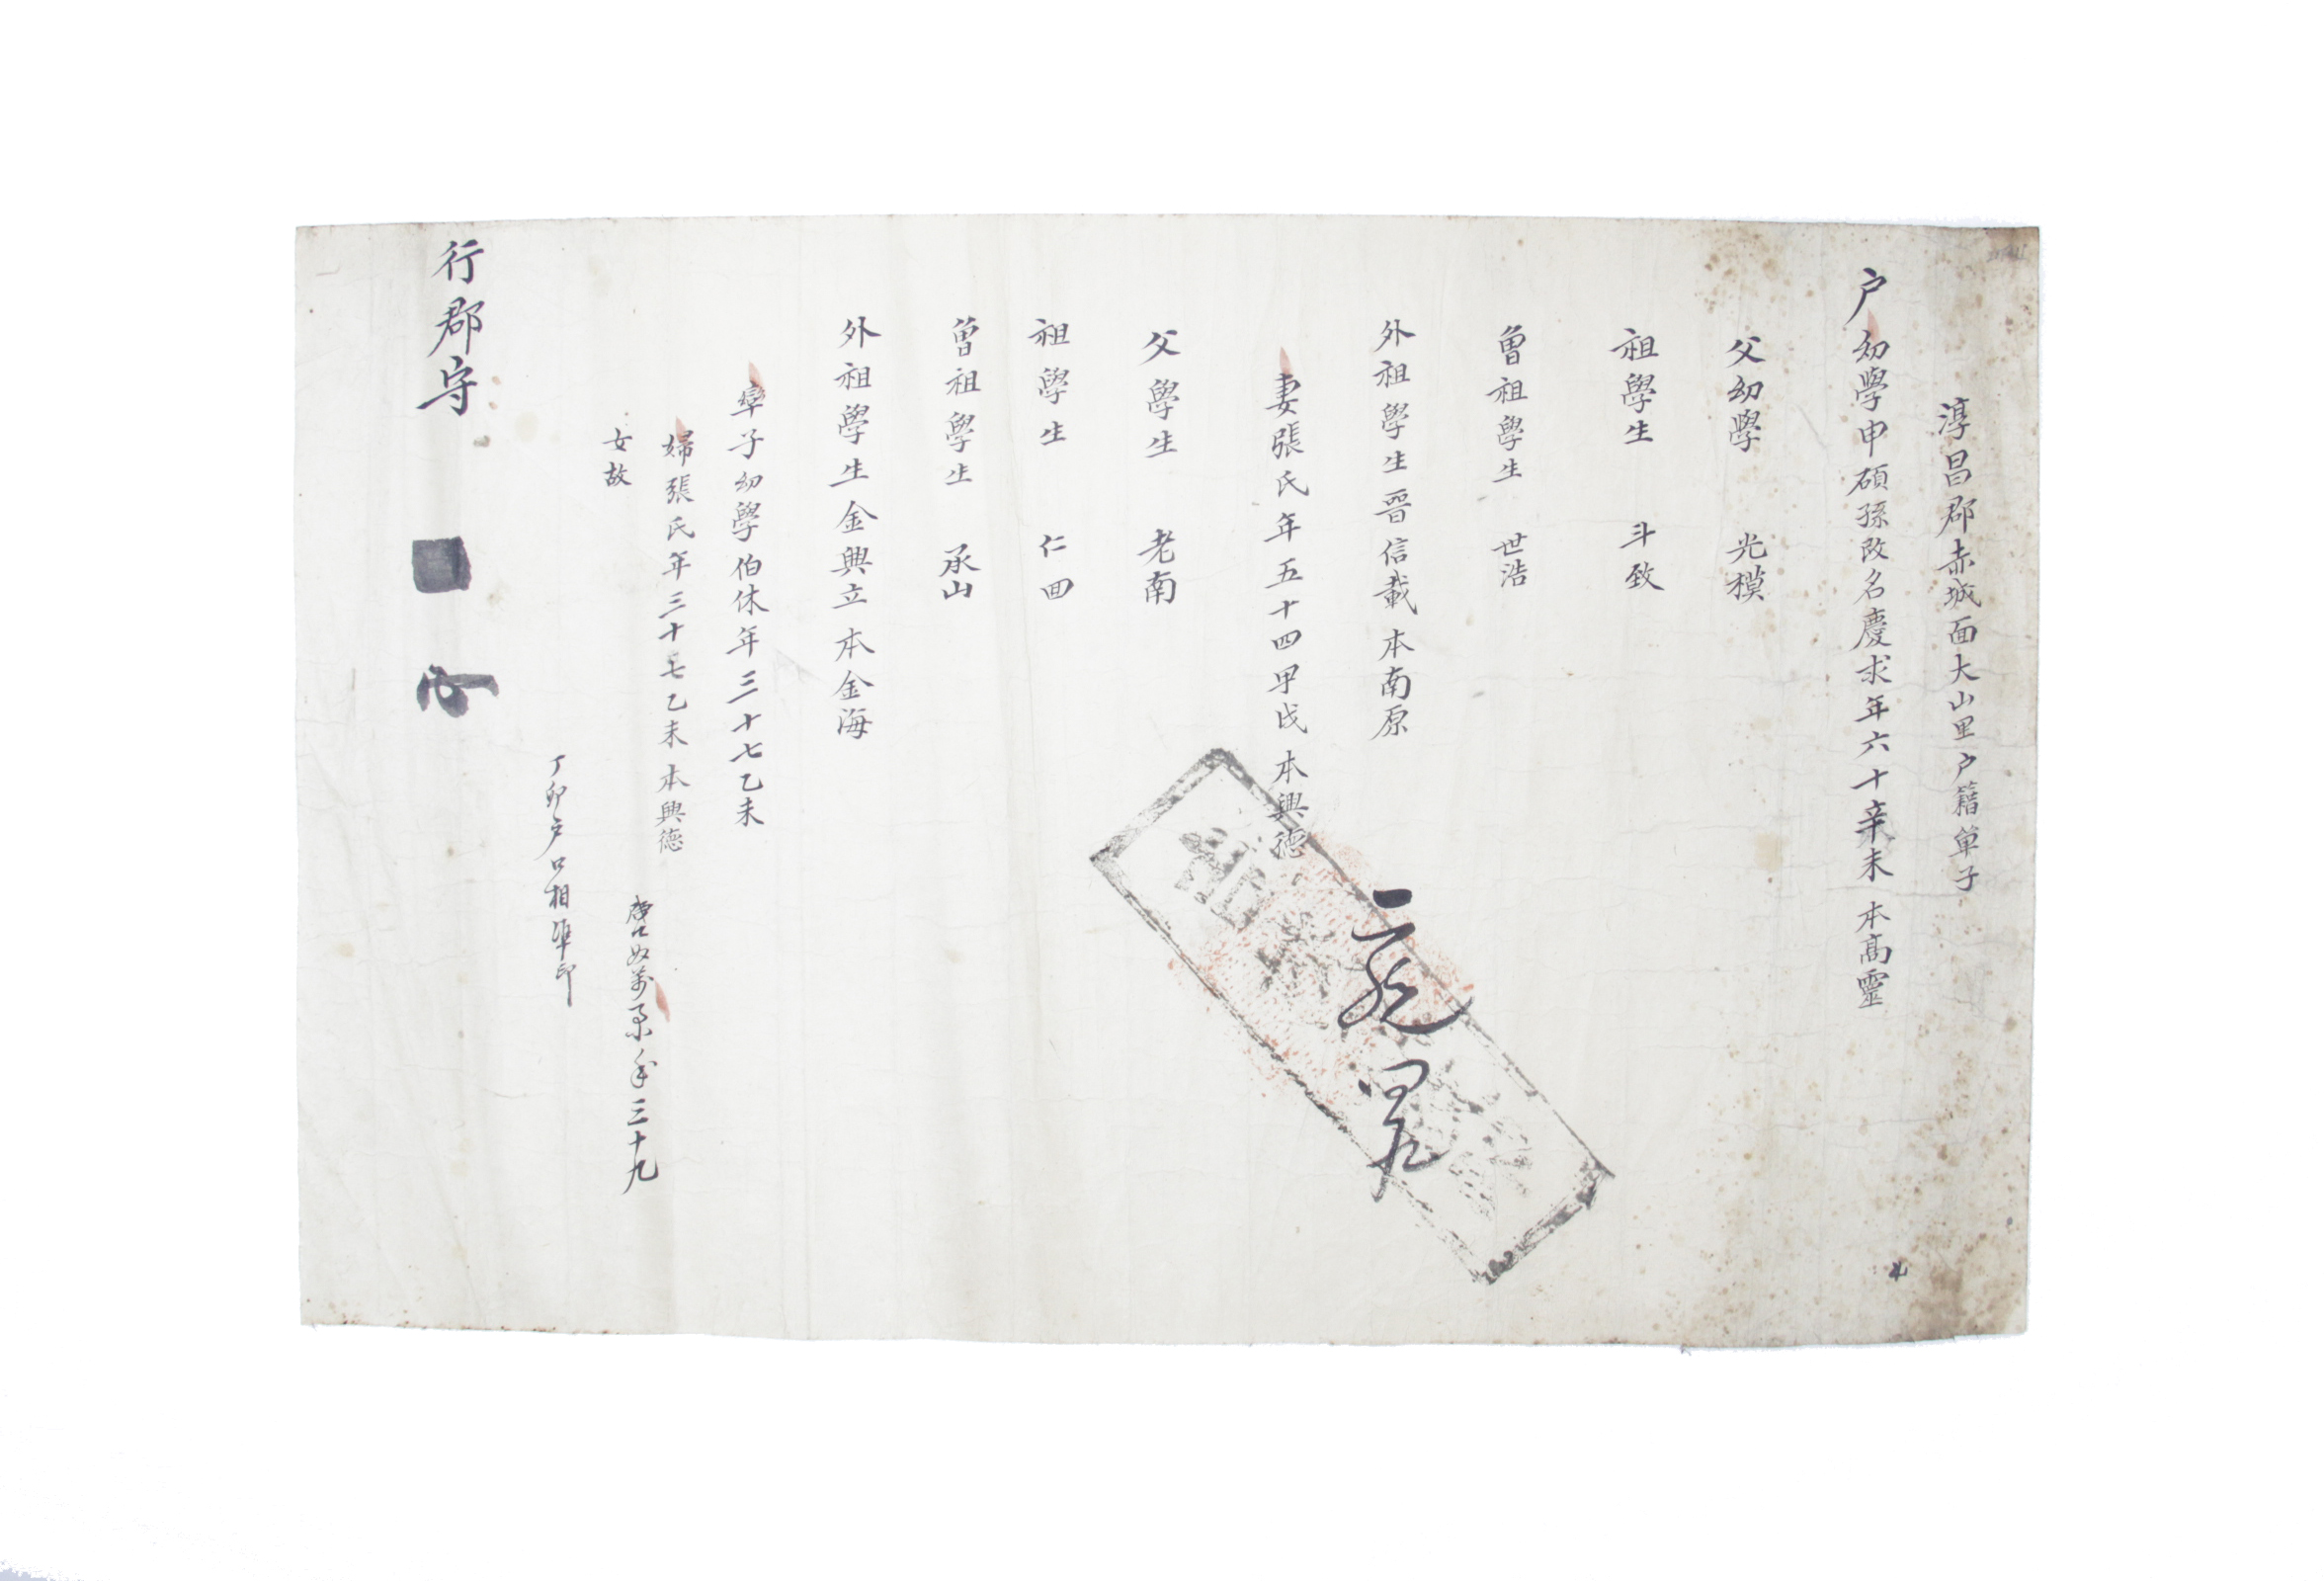 淳昌郡赤城面大山里户籍單子
户幼學申碩孫改名慶求年六十辛未 本高靈
父幼學 光模
祖學生 斗致
曾祖學生 世浩
外祖學生晉信載 本南原
妻張氏年五十四甲戌 本興德
父學生 老南
祖學生 仁
曾祖學生 承山
外祖學生金興立 本金海
率子幼學伯休年三十七乙未
婦張氏年三十七乙未 本興德
女故
奴萬 年三十九
丁卯户口相準印
行郡守